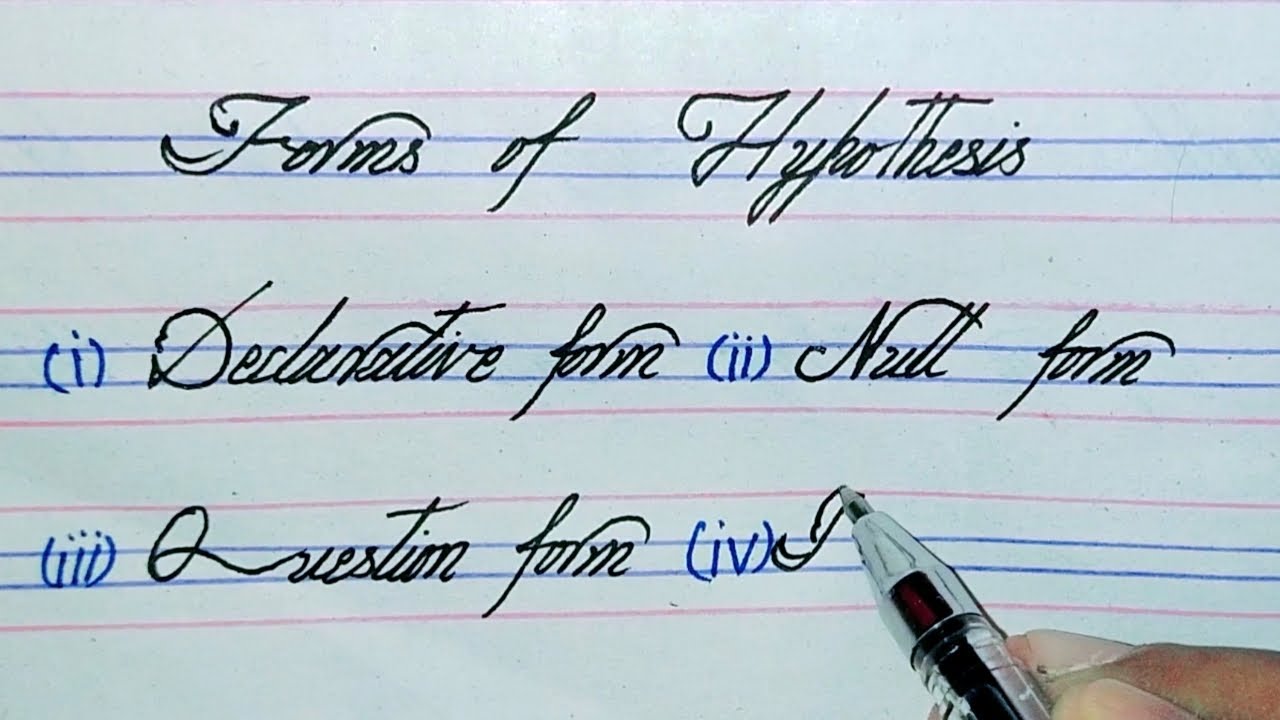 Forms of Hypothesis
(i) Declarative form (ii) Null form
(iii) Question form (iv)